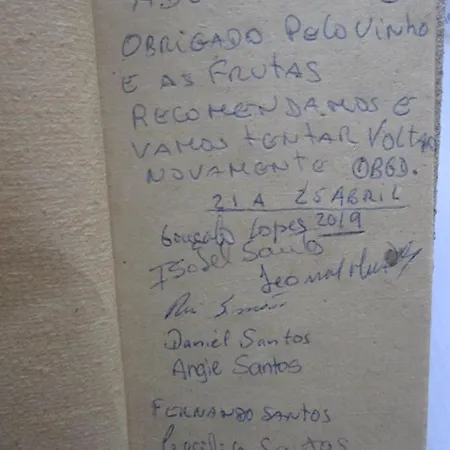 OBRIGADO PELO VINHO
E AS FRUTAS
RECOMENDAMOS E
VAMOS TENTAR VOLTAR
NOVAMENTE OBGD.
21 A 25 ABRIL
2019
Gonçalo Lopes
Isabel Santos
Daniel Santos
Angie Santos
FERNANDO SANTOS
Santos